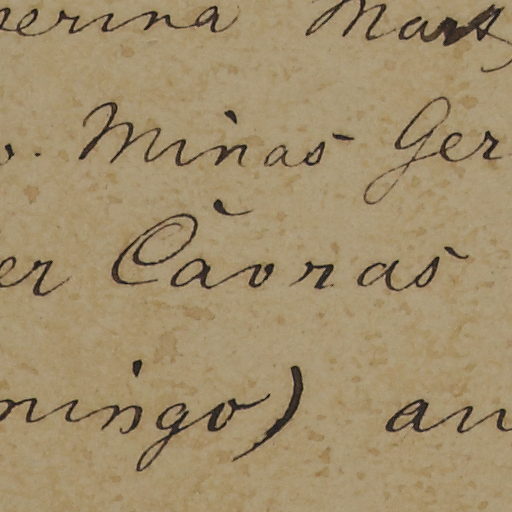 serina Mart
o. Minas Ger
er Cavras
mingo) an